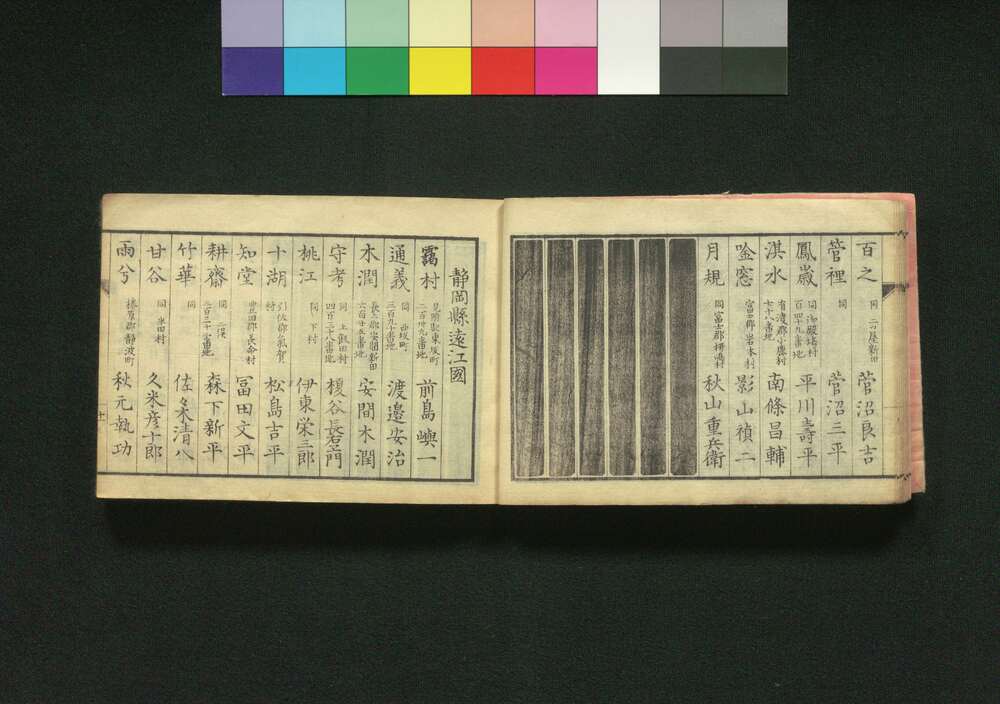 百之 同 二ツ屋新田 菅沼良吉
管裡 同 菅沼三平
鳳嵗 番地 平川壽平
淇水 有渡郡小鹿村 七十八番地 南條昌輔
唫窓 富士郡岩本村 影山禎二
月規 同富士郡 秋山重兵衛
静岡縣遠江國
靄村 二百卅九番地 前島嶼一
通義 同 西坂町 三百九十番地 渡邊安治
木潤 長上郡安間新田 六百廿五番地 安間木潤
守考 同 上飯田村 四百三十八番地 榎谷長右エ門
桃江 同 下村 伊東栄三郎
十湖 引佐郡氣賀村 松島吉平
知堂 豊田郡長命村 冨田文平
耕齋 同 二俣 二百二十六番地 森下新平
竹華 同 佐々木清八
甘谷 同 米田村 久米彦十郎
雨兮 榛原郡静波町 秋元執功
十一